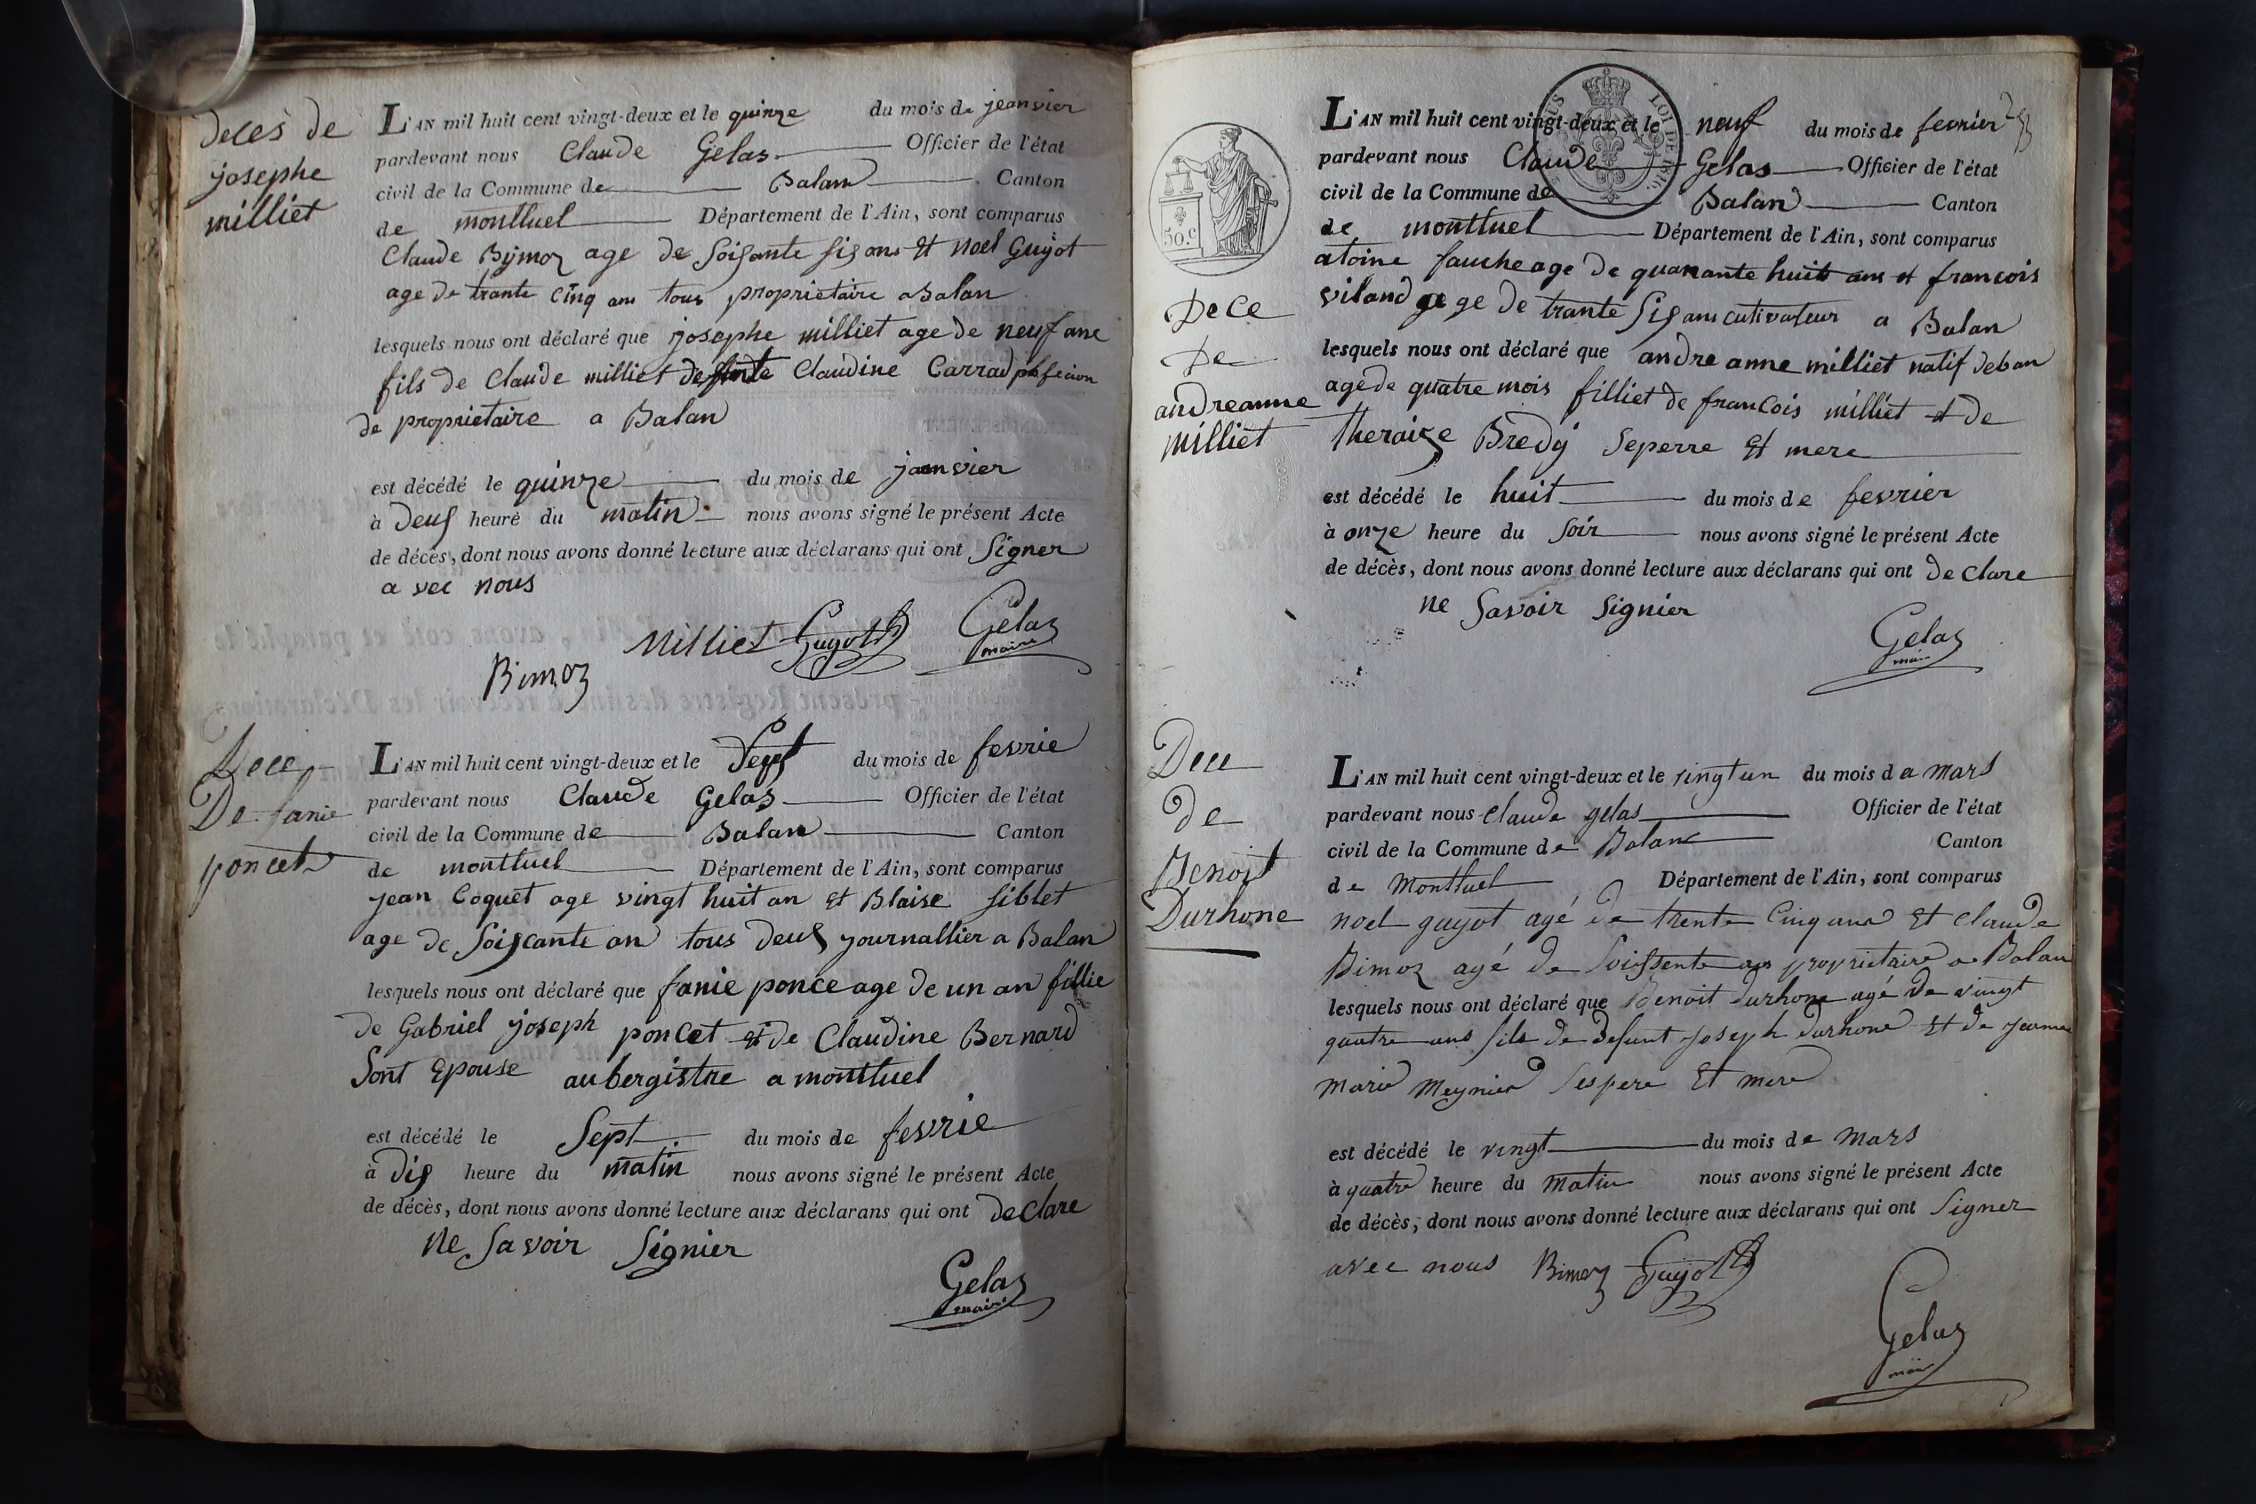 Deces de
josephe
milliet
L'AN mil huit cent vingt-deux et le quinze du mois de jeanvier
pardevant nous Claude Gelas Officier de l'état
civil de la Commune de Balan Canton
de montluel Département de l'Ain, sont comparus
Claude Bymoz age de soisante sis ans et noel Guyot
age de trante cinq ans tous propriétaire a Balan
lesquels nous ont déclaré que josephe milliet age de neuf ans
fils de Claude milliet defunte Claudine Carrad
de proprietaire a Balan
est décédé le quinze du mois de janvier
à deus heure du matin nous avons signé le présent Acte
de décès, dont nous avons donné lecture aux déclarans qui ont signer
a vec nous
Milliet Guyot Gelas
maire
Bimoz
Dece
De fanie
poncet
L'AN mil huit cent vingt-deux et le Sept du mois de fevrie
pardevant nous Claude Gelas Officier de l'état
civil de la Commune de Balan Canton
de montluel Département de l'Ain, sont comparus
jean Coquet age vingt huit an et Blaise siblet
age de soiscante an tous deus journallier a Balan
lesquels nous ont déclaré que fanie ponce age de un an fillie
de Gabriel joseph poncet et de Claudine Bernard
sont epouse aubergistre a montluel
est décédé le Sept du mois de fevrie
à dis heure du matin nous avons signé le présent Acte
de décès, dont nous avons donné lecture aux déclarans qui ont declare
ne savoir signier
Gelas
maire
50.c
Dece
De
andreanne
milliet
L'AN mil huit cent vingt-deux et le neuf du mois de fevrier
pardevant nous Claude Gelas Officier de l'état
civil de la Commune de Balan Canton
de montluel Département de l'Ain, sont comparus
atoine fauche age de quarante huit ans et francois
viland age de trante sis ans cutivateur a Balan
lesquels nous ont déclaré que andre anne milliet natif deban
age de quatre mois filliet de francois milliet et de
theraize Bredy seperre et mere
est décédé le huit du mois de fevrier
à onze heure du soir nous avons signé le présent Acte
de décès, dont nous avons donné lecture aux déclarans qui ont declare
ne savoir signier
Gelas
maire
Dece
de
Benoit
Durhone
L'AN mil huit cent vingt-deux et le vingt un du mois de mars
pardevant nous claude gelas Officier de l'état
civil de la Commune de Balan Canton
de Montluel Département de l'Ain, sont comparus
noel guyot agé de trente cinq ans et claude
Bimoz agé de soissente ans proprietaire a Balan
lesquels nous ont déclaré que Benoit durhone agé de vingt
quatre ans fils de defunt joseph durhone et de jeanne
marie meynier ses pere et mere
est décédé le vingt du mois de mars
à quatre heure du matin nous avons signé le présent Acte
de décès, dont nous avons donné lecture aux déclarans qui ont signer
avec nous Bimoz Guyot
Gelas
maire